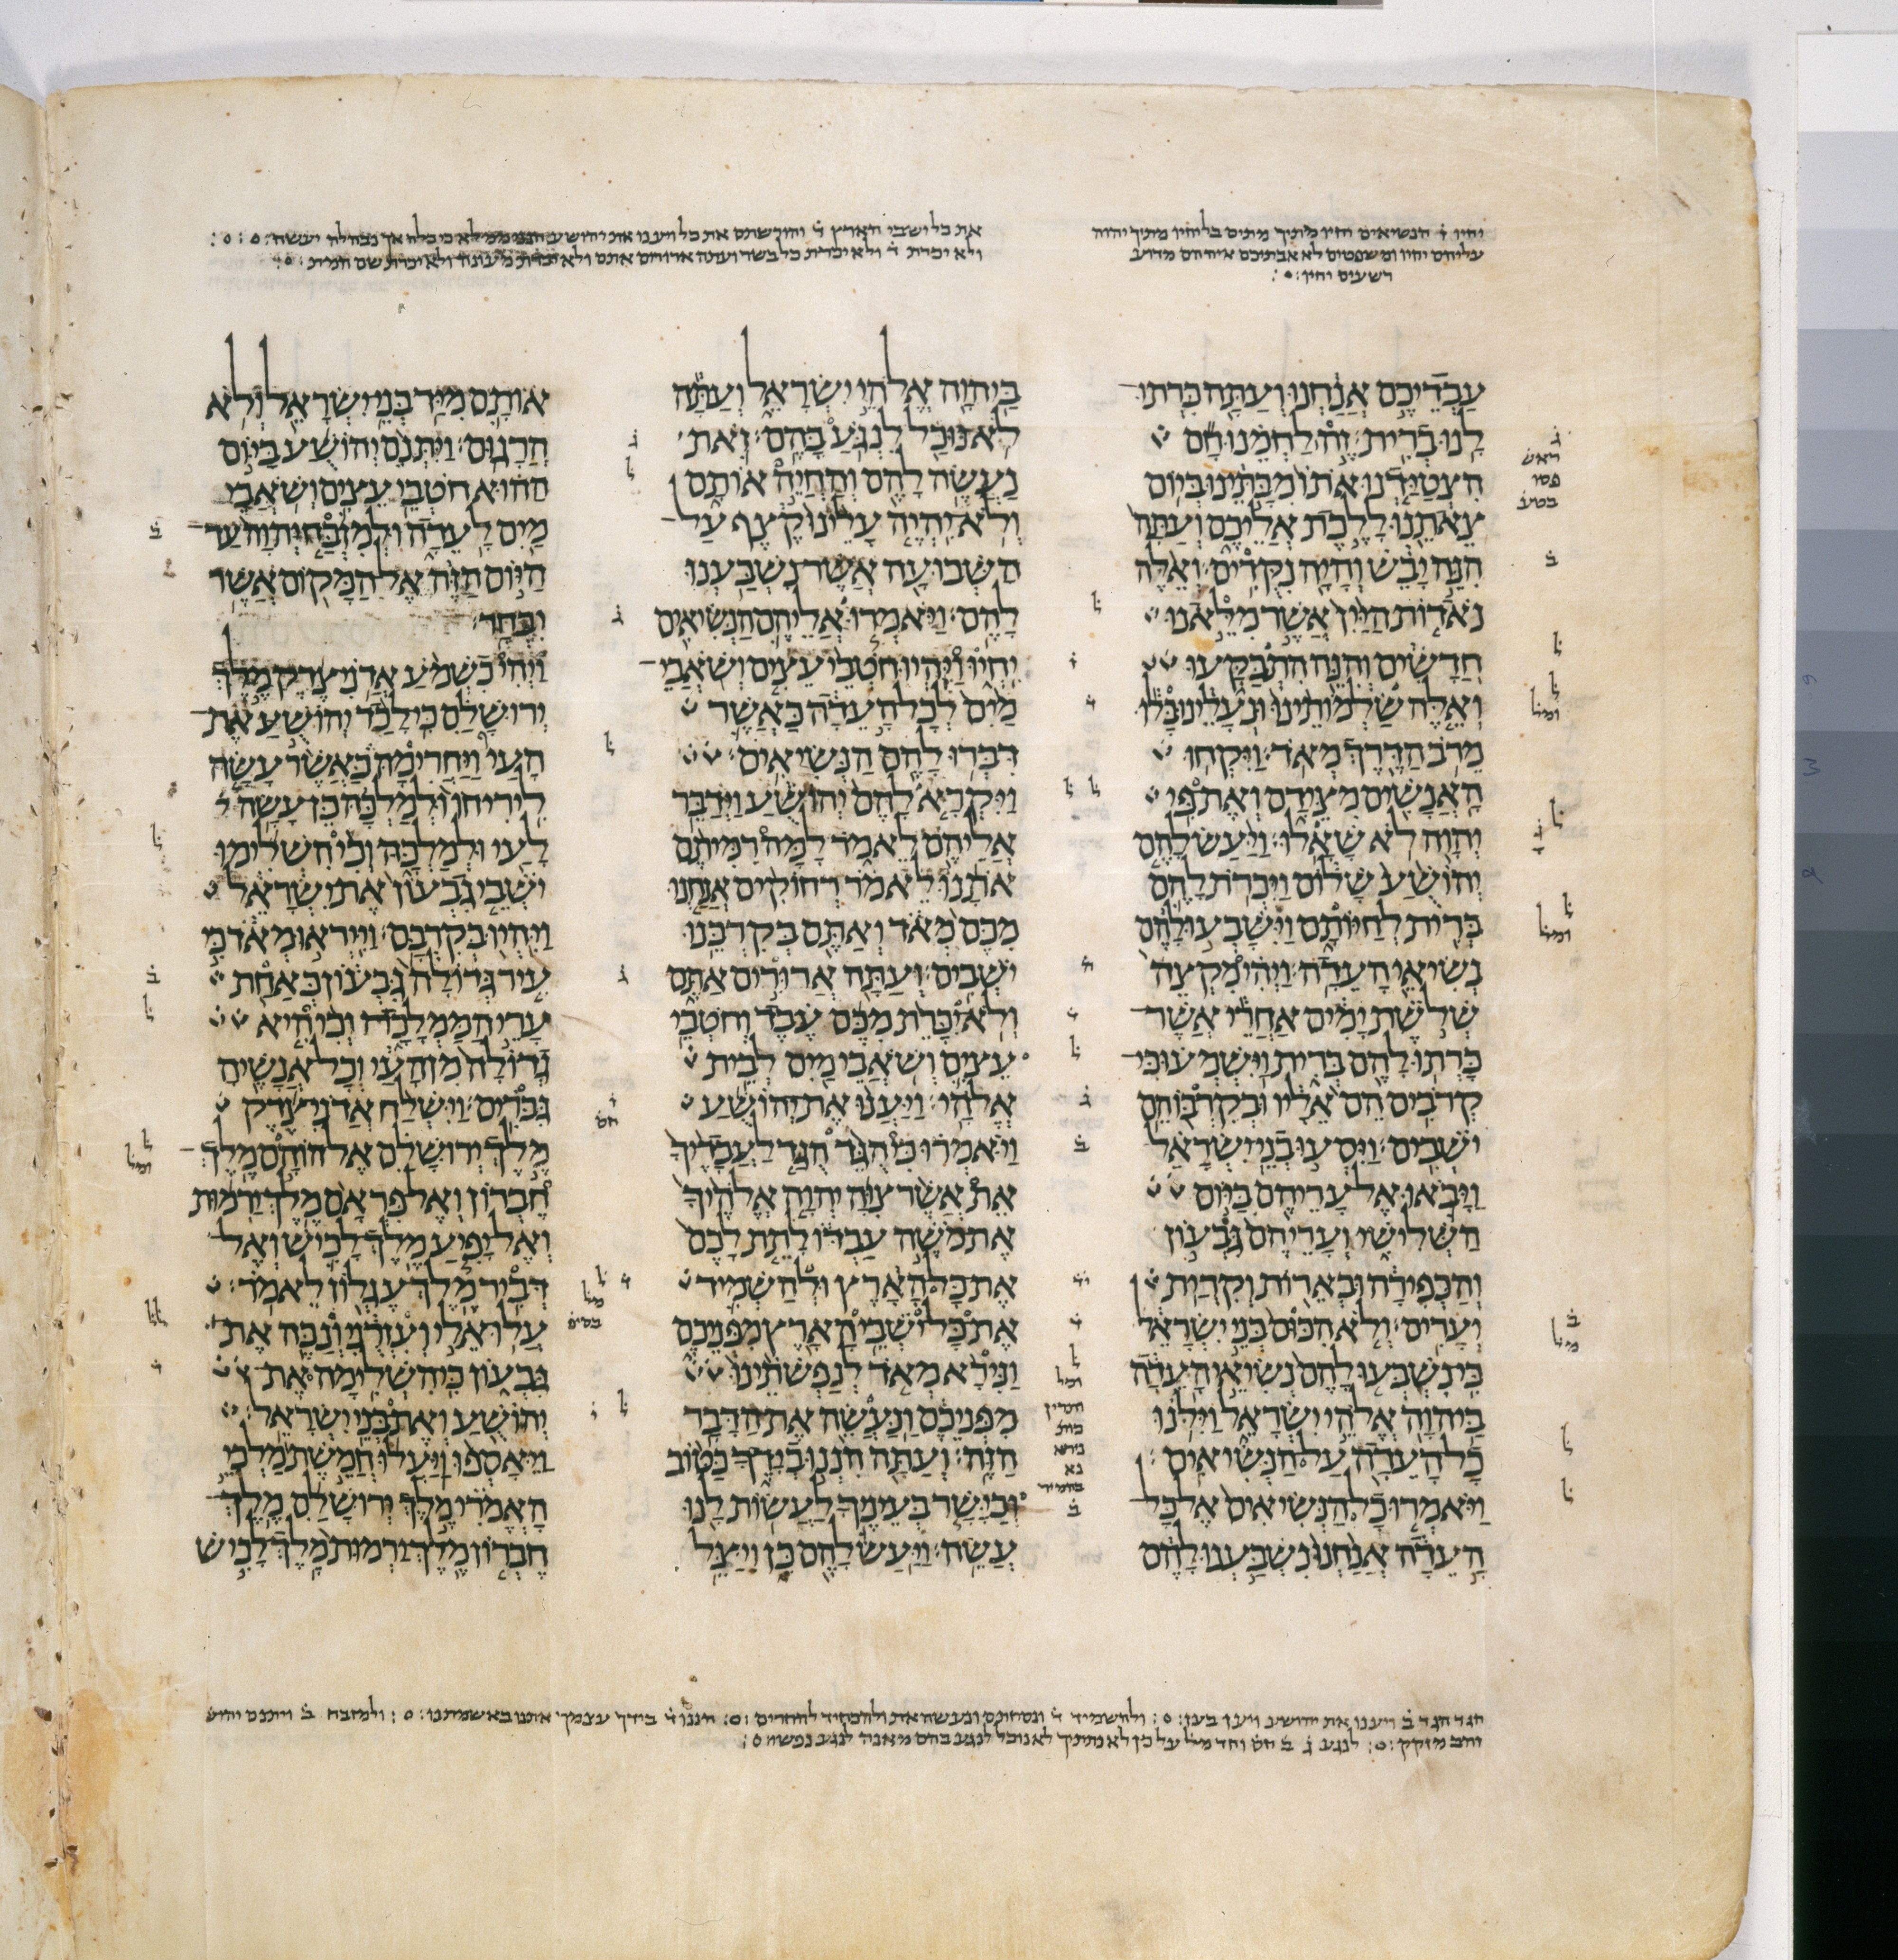 יחיו ד הנשיאים יחיו מיתיך מתים בל יחיו מתיך יהוה
עליהם יחיו ומשפטים לא אבתיכם איה הם מדוע
רשעים יחיו
את כל ישבי הארץ ד והורשתם את כל ויענו את יהושע כי כלה אך נבהלה יעשה
ולא יכרת ד ולא יכרת כל בשר ועתה ארורים אתם ולא יכרת שם המית
עבדיכם אנחנו ועתה כרתו
לנו ברית׃ זה לחמנו חם
הצטידנו אתו מבתינו ביום
צאתנו ללכת אליכם ועתה
הנה יבש והיה נקדים׃ ואלה
נאדות היין אשר מלאנו
חדשים והנה התבקעו
ואלה שלמותינו ונעלינו בלו
מרב הדרך מאד׃ ויקחו
האנשים מצידם ואת פי
יהוה לא שאלו׃ ויעש להם
יהושע שלום ויכרת להם
ברית לחיותם וישבעו להם
נשיאי העדה׃ ויהי מקצה
שלשת ימים אחרי אשר
כרתו להם ברית וישמעו כי
קרבים הם אליו ובקרבו הם
ישבים׃ ויסעו בני ישראל
ויבאו אל עריהם ביום
השלישי ועריהם גבעון
והכפירה ובארות וקרית
יערים׃ ולא הכום בני ישראל
כי נשבעו להם נשיאי העדה
ביהוה אלהי ישראל וילנו
כל העדה על הנשיאים׃
ויאמרו כל הנשיאים אל כל
העדה אנחנו נשבענו להם
ביהוה אלהי ישראל ועתה
לא נוכל לנגע בהם׃ זאת
נעשה להם והחיה אותם
ולא יהיה עלינו קצף על
השבועה אשר נשבענו
להם׃ ויאמרו אליהם הנשיאים
יחיו ויהיו חטבי עצים ושאבי
מים לכל העדה כאשר
דברו להם הנשיאים׃
ויקרא להם יהושע וידבר
אליהם לאמר למה רמיתם
אתנו לאמר רחוקים אנחנו
מכם מאד ואתם בקרבנו
ישבים׃ ועתה ארורים אתם
ולא יכרת מכם עבד וחטבי
עצים ושאבי מים לבית
אלהי׃ ויענו את יהושע
ויאמרו כי הגד הגד לעבדיך
את אשר צוה יהוה אלהיך
את משה עבדו לתת לכם
את כל הארץ ולהשמיד
את כל ישבי הארץ מפניכם
ונירא מאד לנפשתינו
מפניכם ונעשה את הדבר
הזה׃ ועתה הננו בידך כטוב
וכישר בעיניך לעשות לנו
עשה׃ ויעש להם כן ויצל
אותם מיד בני ישראל ולא
הרגום׃ ויתנם יהושע ביום
ההוא חטבי עצים ושאבי
מים לעדה ולמזבח יהוה עד
היום הזה אל המקום אשר
יבחר׃
ויהי כשמע אדני צדק מלך
ירושלם כי לכד יהושע את
העי ויחרימה כאשר עשה
ליריחו ולמלכה כן עשה
לעי ולמלכה וכי השלימו
ישבי גבעון את ישראל
ויהיו בקרבם׃ וייראו מאד כי
עיר גדולה גבעון כאחת
ערי הממלכה וכי היא
גדולה מן העי וכל אנשיה
גברים׃ וישלח אדני צדק
מלך ירושלם אל הוהם מלך
חברון ואל פראם מלך ירמות
ואל יפיע מלך לכיש ואל
דביר מלך עגלון לאמר׃
עלו אלי ועזרני ונכה את
גבעון כי השלימה את
יהושע ואת בני ישראל׃
ויאספו ויעלו חמשת מלכי
האמרי מלך ירושלם מלך
חברון מלך ירמות מלך לכיש
הגד הגד ב ויענו את יהושע ויען בעז ׃ ולהשמיד ד ונסחתם ונעשה את ולהסתיר לחחרים ׃ הננו ד בידך עצמך אתנו באשמתנו ׃ ולמזבח ב ויתנם יהוש
וזהב מזקק ׃ לנגע ג ב חס וחד מל על כן לא נתתיך לא נוכל לנגע בהם מאנה לנגע נפשי